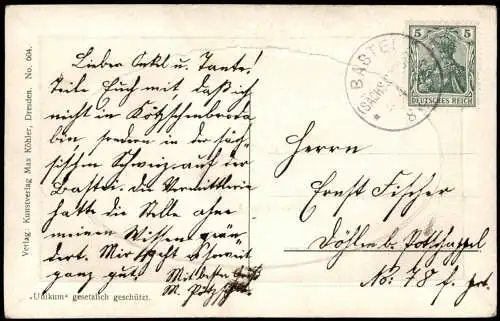 Verlag: Kunstverlag Max Köhler, Dresden. No. 604.
Lieber Onkel u. Tante!
Teile Euch mit daß ich
nicht in Kötzschenbroda
bin, sondern in der säch-
sischen Schweiz auf der
Bastei. Die Vermittlerin
hatte die Stelle ohne
meinen Wissen geän-
dert. Mir geht es soweit
ganz gut. Mit besten Gruß
M.
„Unikum“ gesetzlich geschützt.
BASTEI
(SÄCHS.
5 5
DEUTSCHES REICH
Herrn
Ernst Fischer
Döhlen b. Potschappel
No: 78 f.